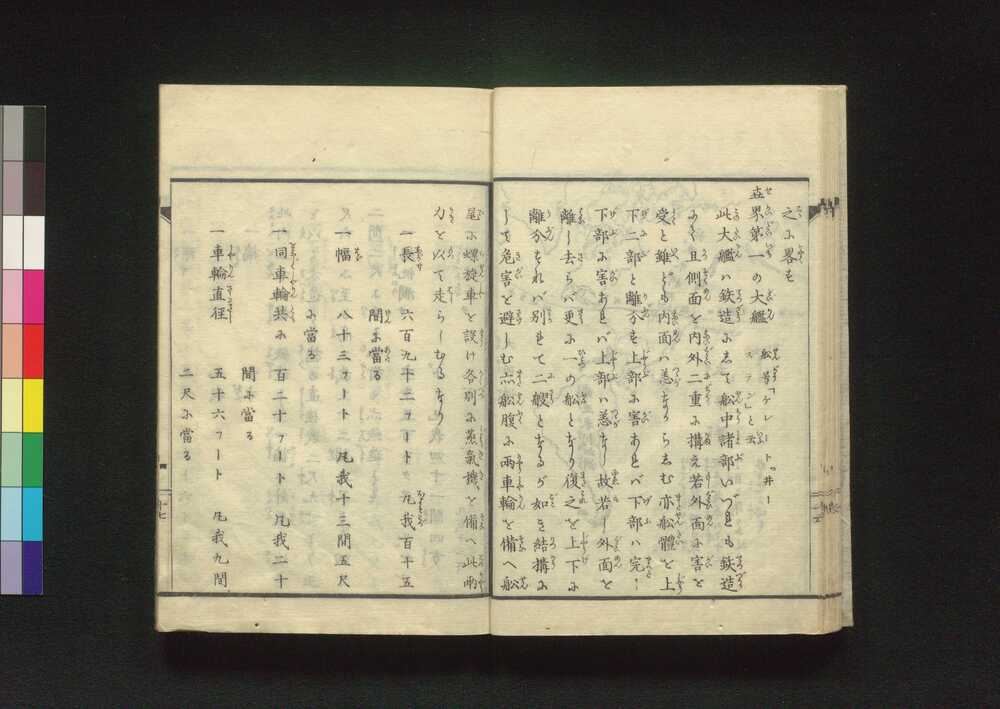 之に畧す
世界第一の大艦 船号「ゲレート、井ー
ステン」と云
此大艦ハ鉄造にして船中諸部いづれも鉄造
なり且側面を内外二重に搆え若外面に害を
受と雖ども内面ハ恙なからしむ亦船體を上
下二部と離分す上部に害あれバ下部ハ完く
下部に害あれバ上部ハ恙なし故若し外面を
離し去らバ更に一の船となり復之を上下に
離分すれバ別れて二艘となるが如き結搆に
して危害を避しむ㷔船腹に両車輪を備へ船
尾に螺旋車を設け各別に蒸気機を備へ此両
力を以て走らしむるなり
一長 六百九十二フート 凡我百十五
間に當る
一幅 八十三フート 凡我十三間五尺
に當る
一同車輪共に 百二十フート 凡我二十
間に當る
一車輪直径 五十六フート 凡我九間
二尺に當る